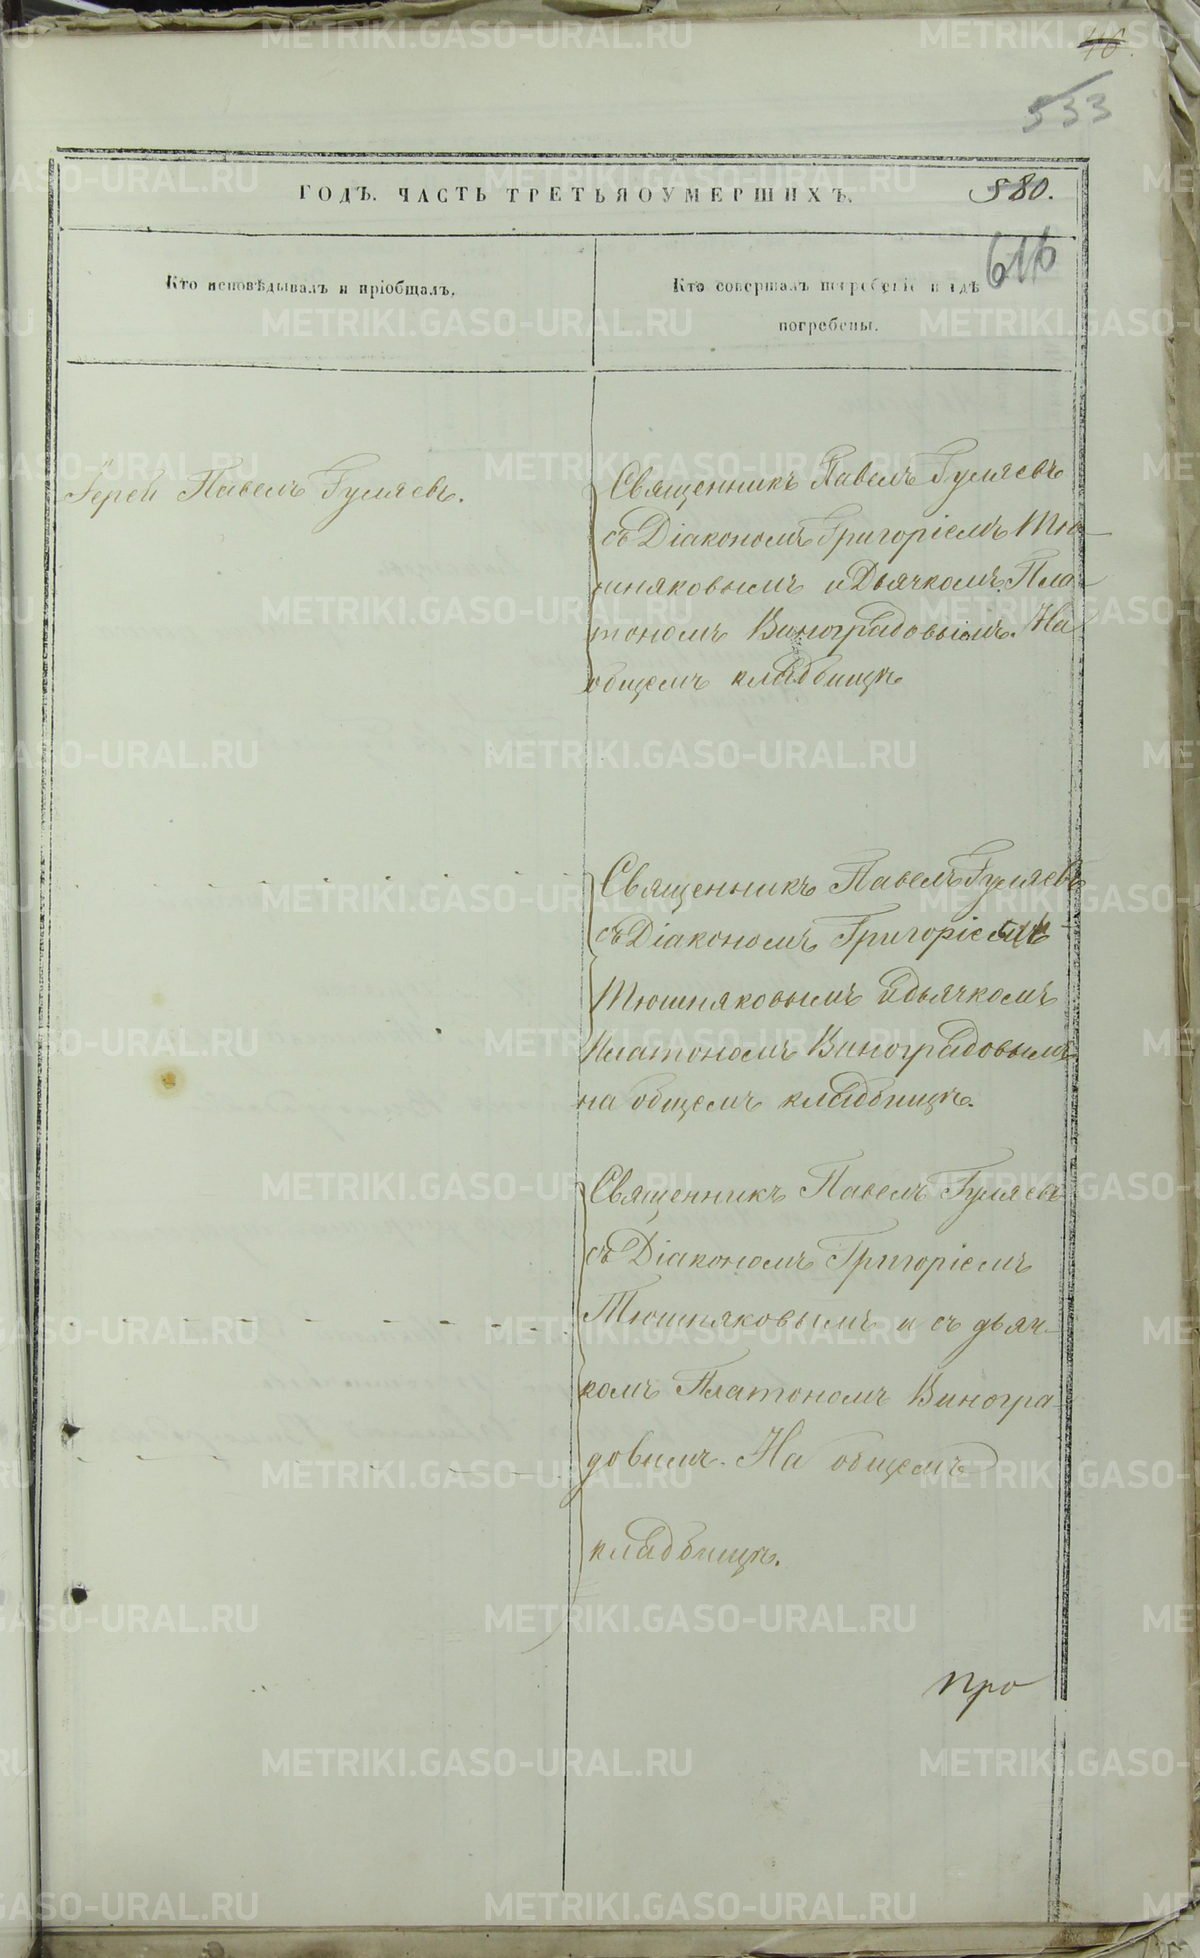 46.
533
ГОДЪ. ЧАСТЬ ТРЕТЬЯ О УМЕРШИХЪ.
580.
616
Кто исповѣдывалъ и пріобщалъ.
Кто совершалъ погребеніе и гдѣ
погребены.
Іерей Павелъ Гуляевъ.
Священникъ Павелъ Гуляевъ
съ Діакономъ Григоріемъ Тю-
шняковымъ и Дьячкомъ Пла-
тономъ Виноградовымъ. На
общемъ кладбищѣ
Священникъ Павелъ Гуляевъ
съ Діакономъ Григоріемъ
Тюшняковымъ и дьячкомъ
Платономъ Виноградовымъ
на общемъ кладбищѣ.
Священникъ Павелъ Гуляевъ
съ Діакономъ Григоріемъ
Тюшняковымъ и съ дьяч-
комъ Платономъ Виногра-
довымъ. На общемъ
кладбищѣ.
про
METRIKI.GASO-URAL.RU